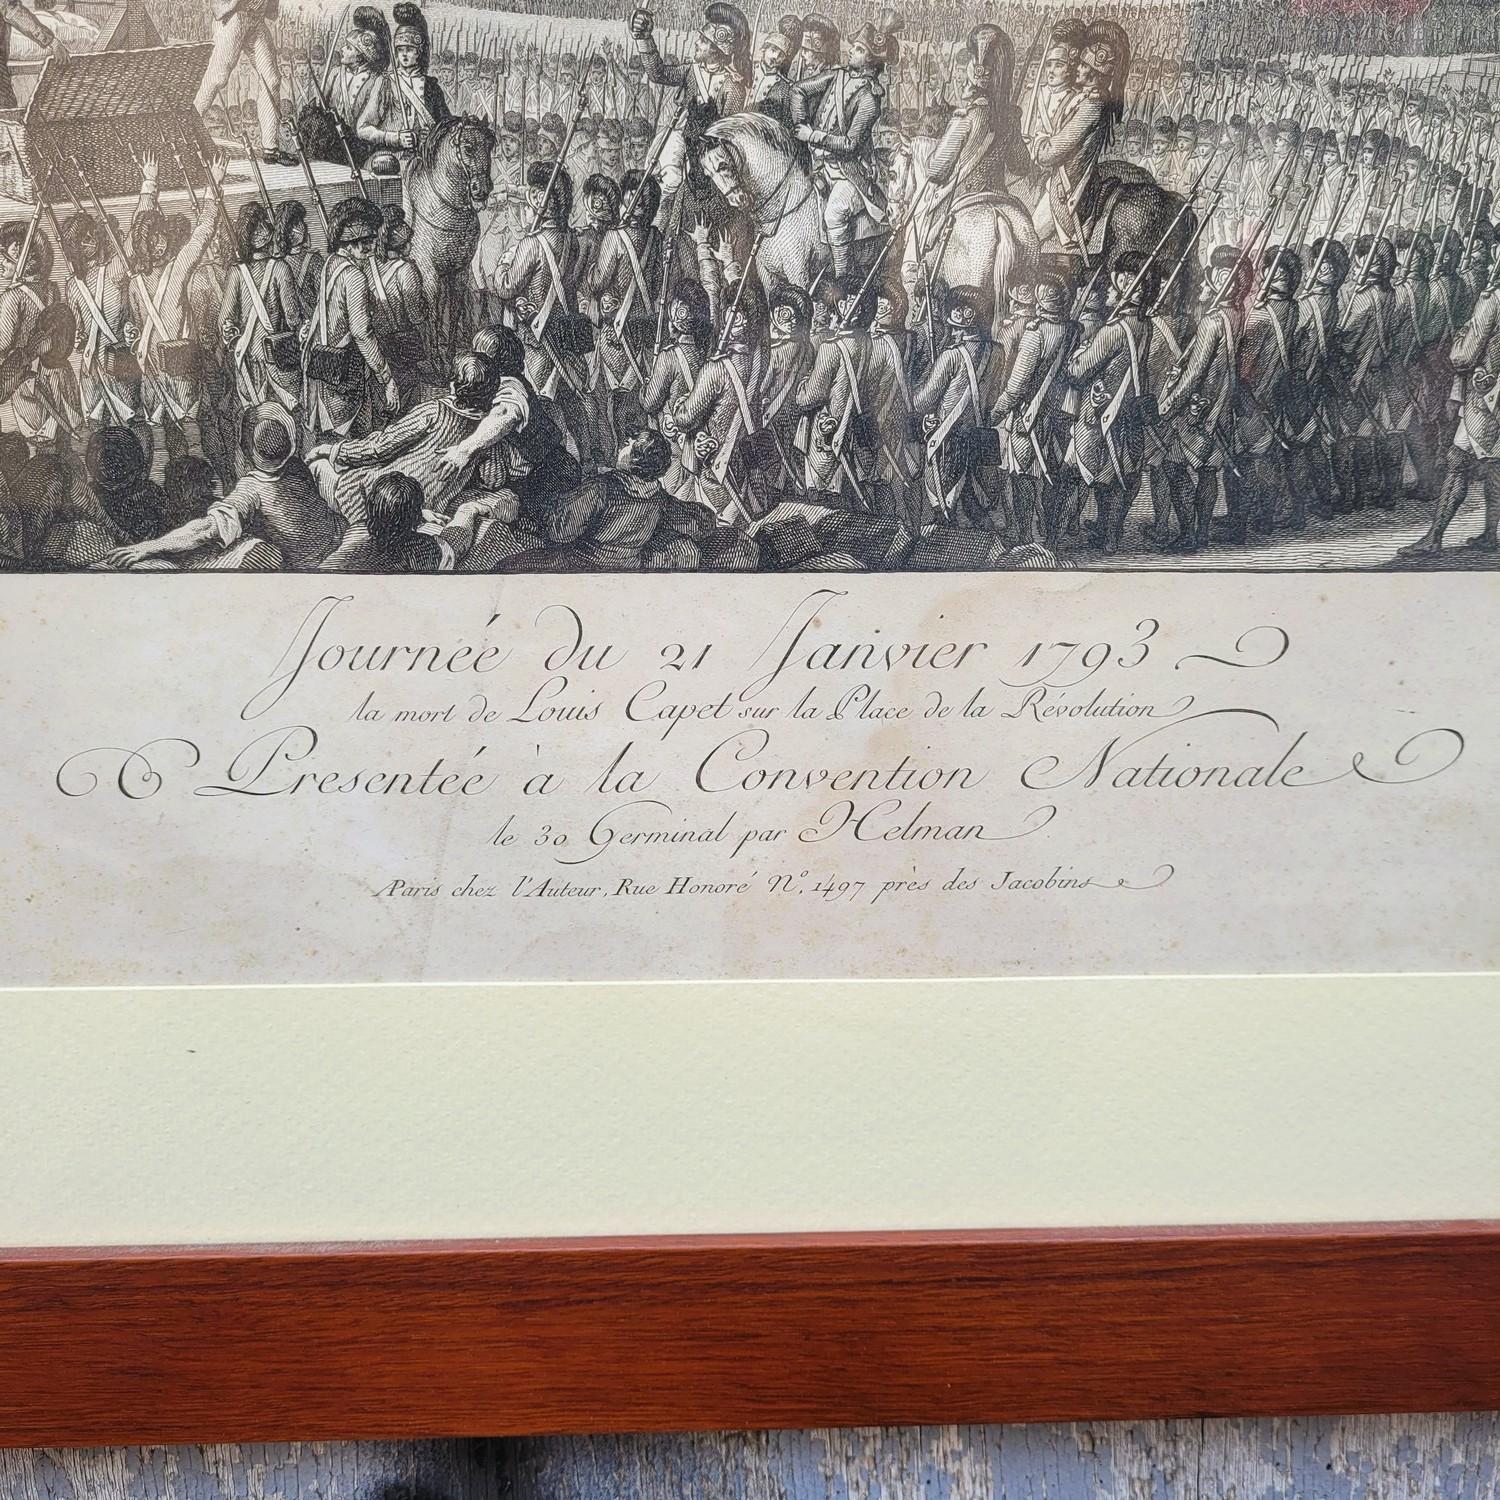 Journée du 21 Janvier 1793
la mort de Louis Capet sur la Place de la Révolution
Presentée à la Convention Nationale
le 30 Germinal par Helman
Paris chez l'Auteur, Rue Honoré N°. 1497 près des Jacobins